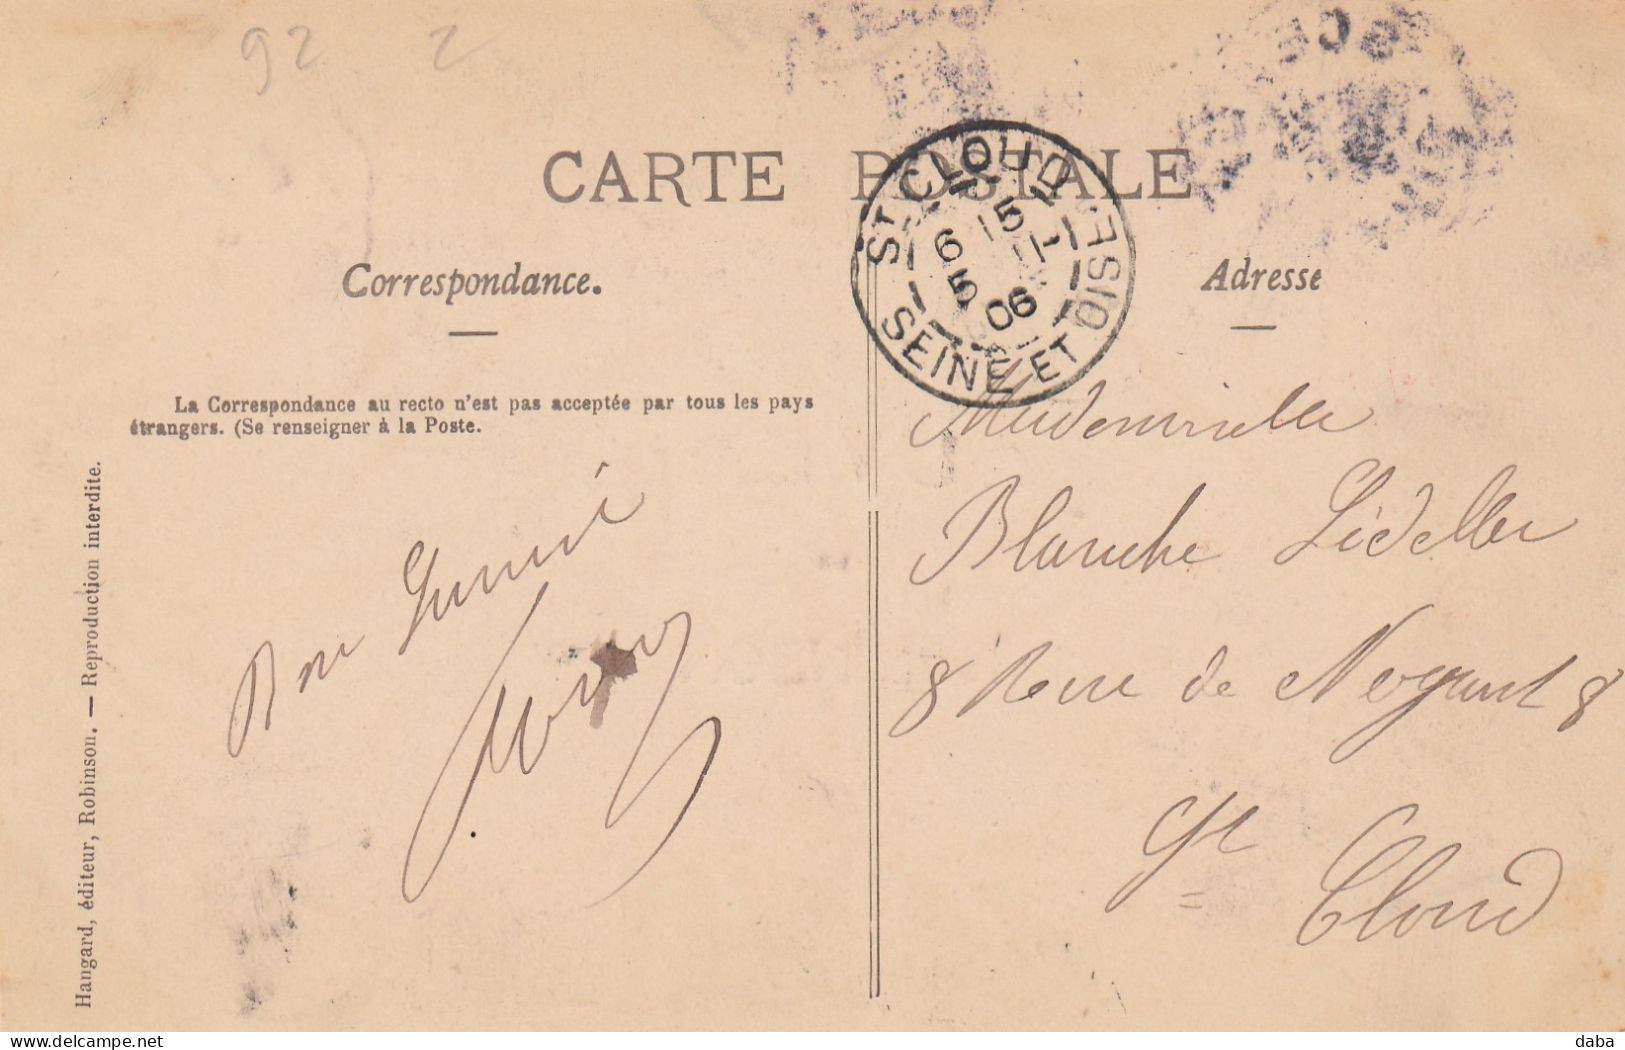 92 2
CARTE POSTALE
Correspondance.
Adresse
St CLOUD
5
6 5 06
SEINE ET OISE
La Correspondance au recto n'est pas acceptée par tous les pays
étrangers. (Se renseigner à la Poste.
Hangard, éditeur, Robinson. — Reproduction interdite.
Mademoiselle
Blanche
8 Rue de Nogent 8
St Cloud
daba